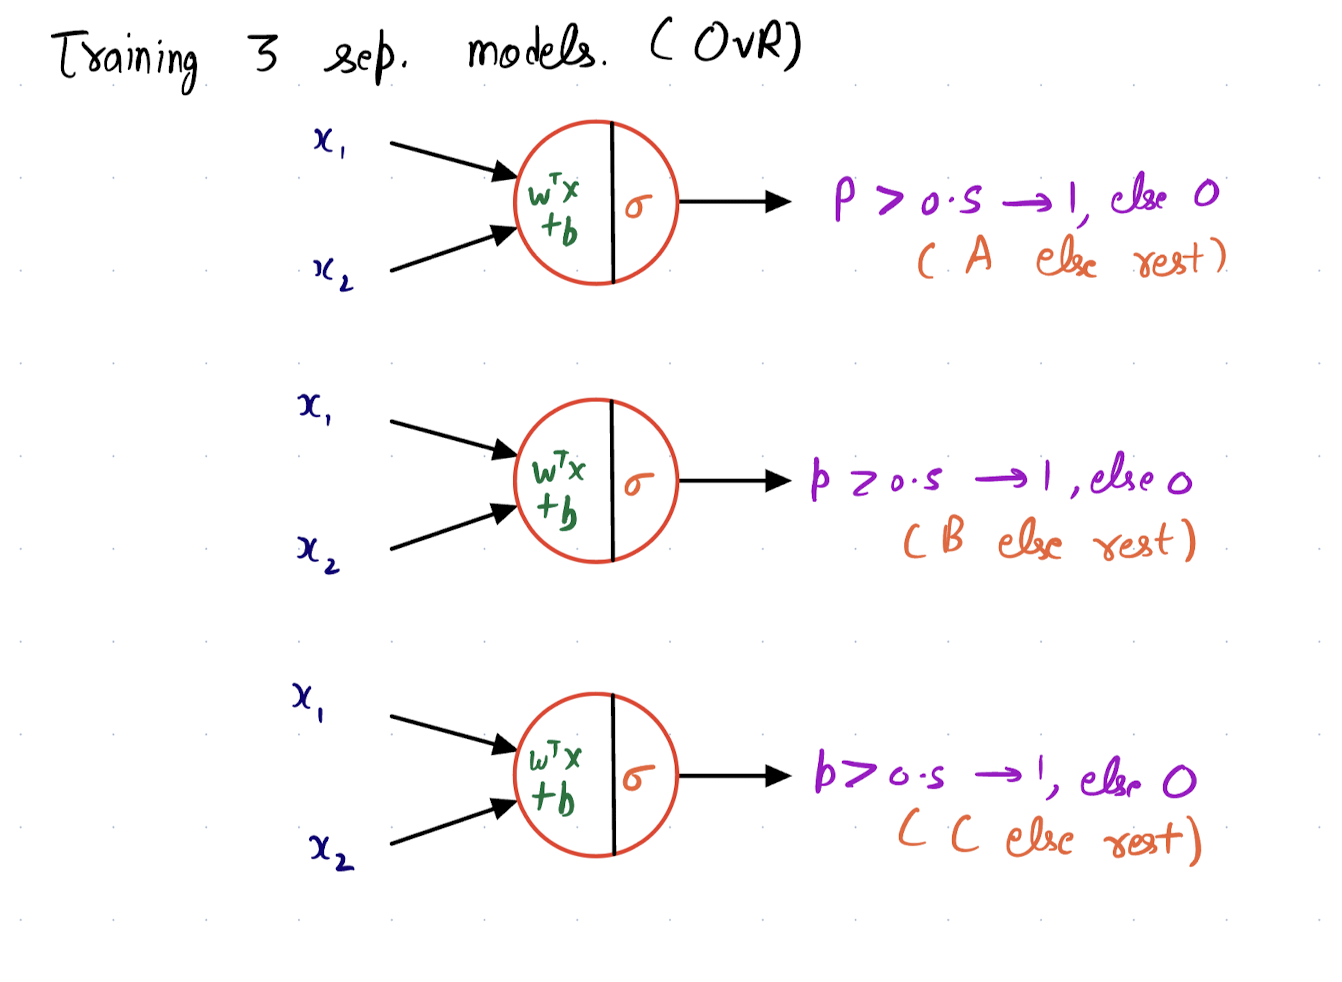 Training 3 sep. models. (OvR)
x₁
wᵀx
+b
σ
p > 0.5 → 1, else 0
(A else rest)
x₂
x₁
wᵀx
+b
σ
p > 0.5 → 1, else 0
(B else rest)
x₂
x₁
wᵀx
+b
σ
p > 0.5 → 1, else 0
(C else rest)
x₂